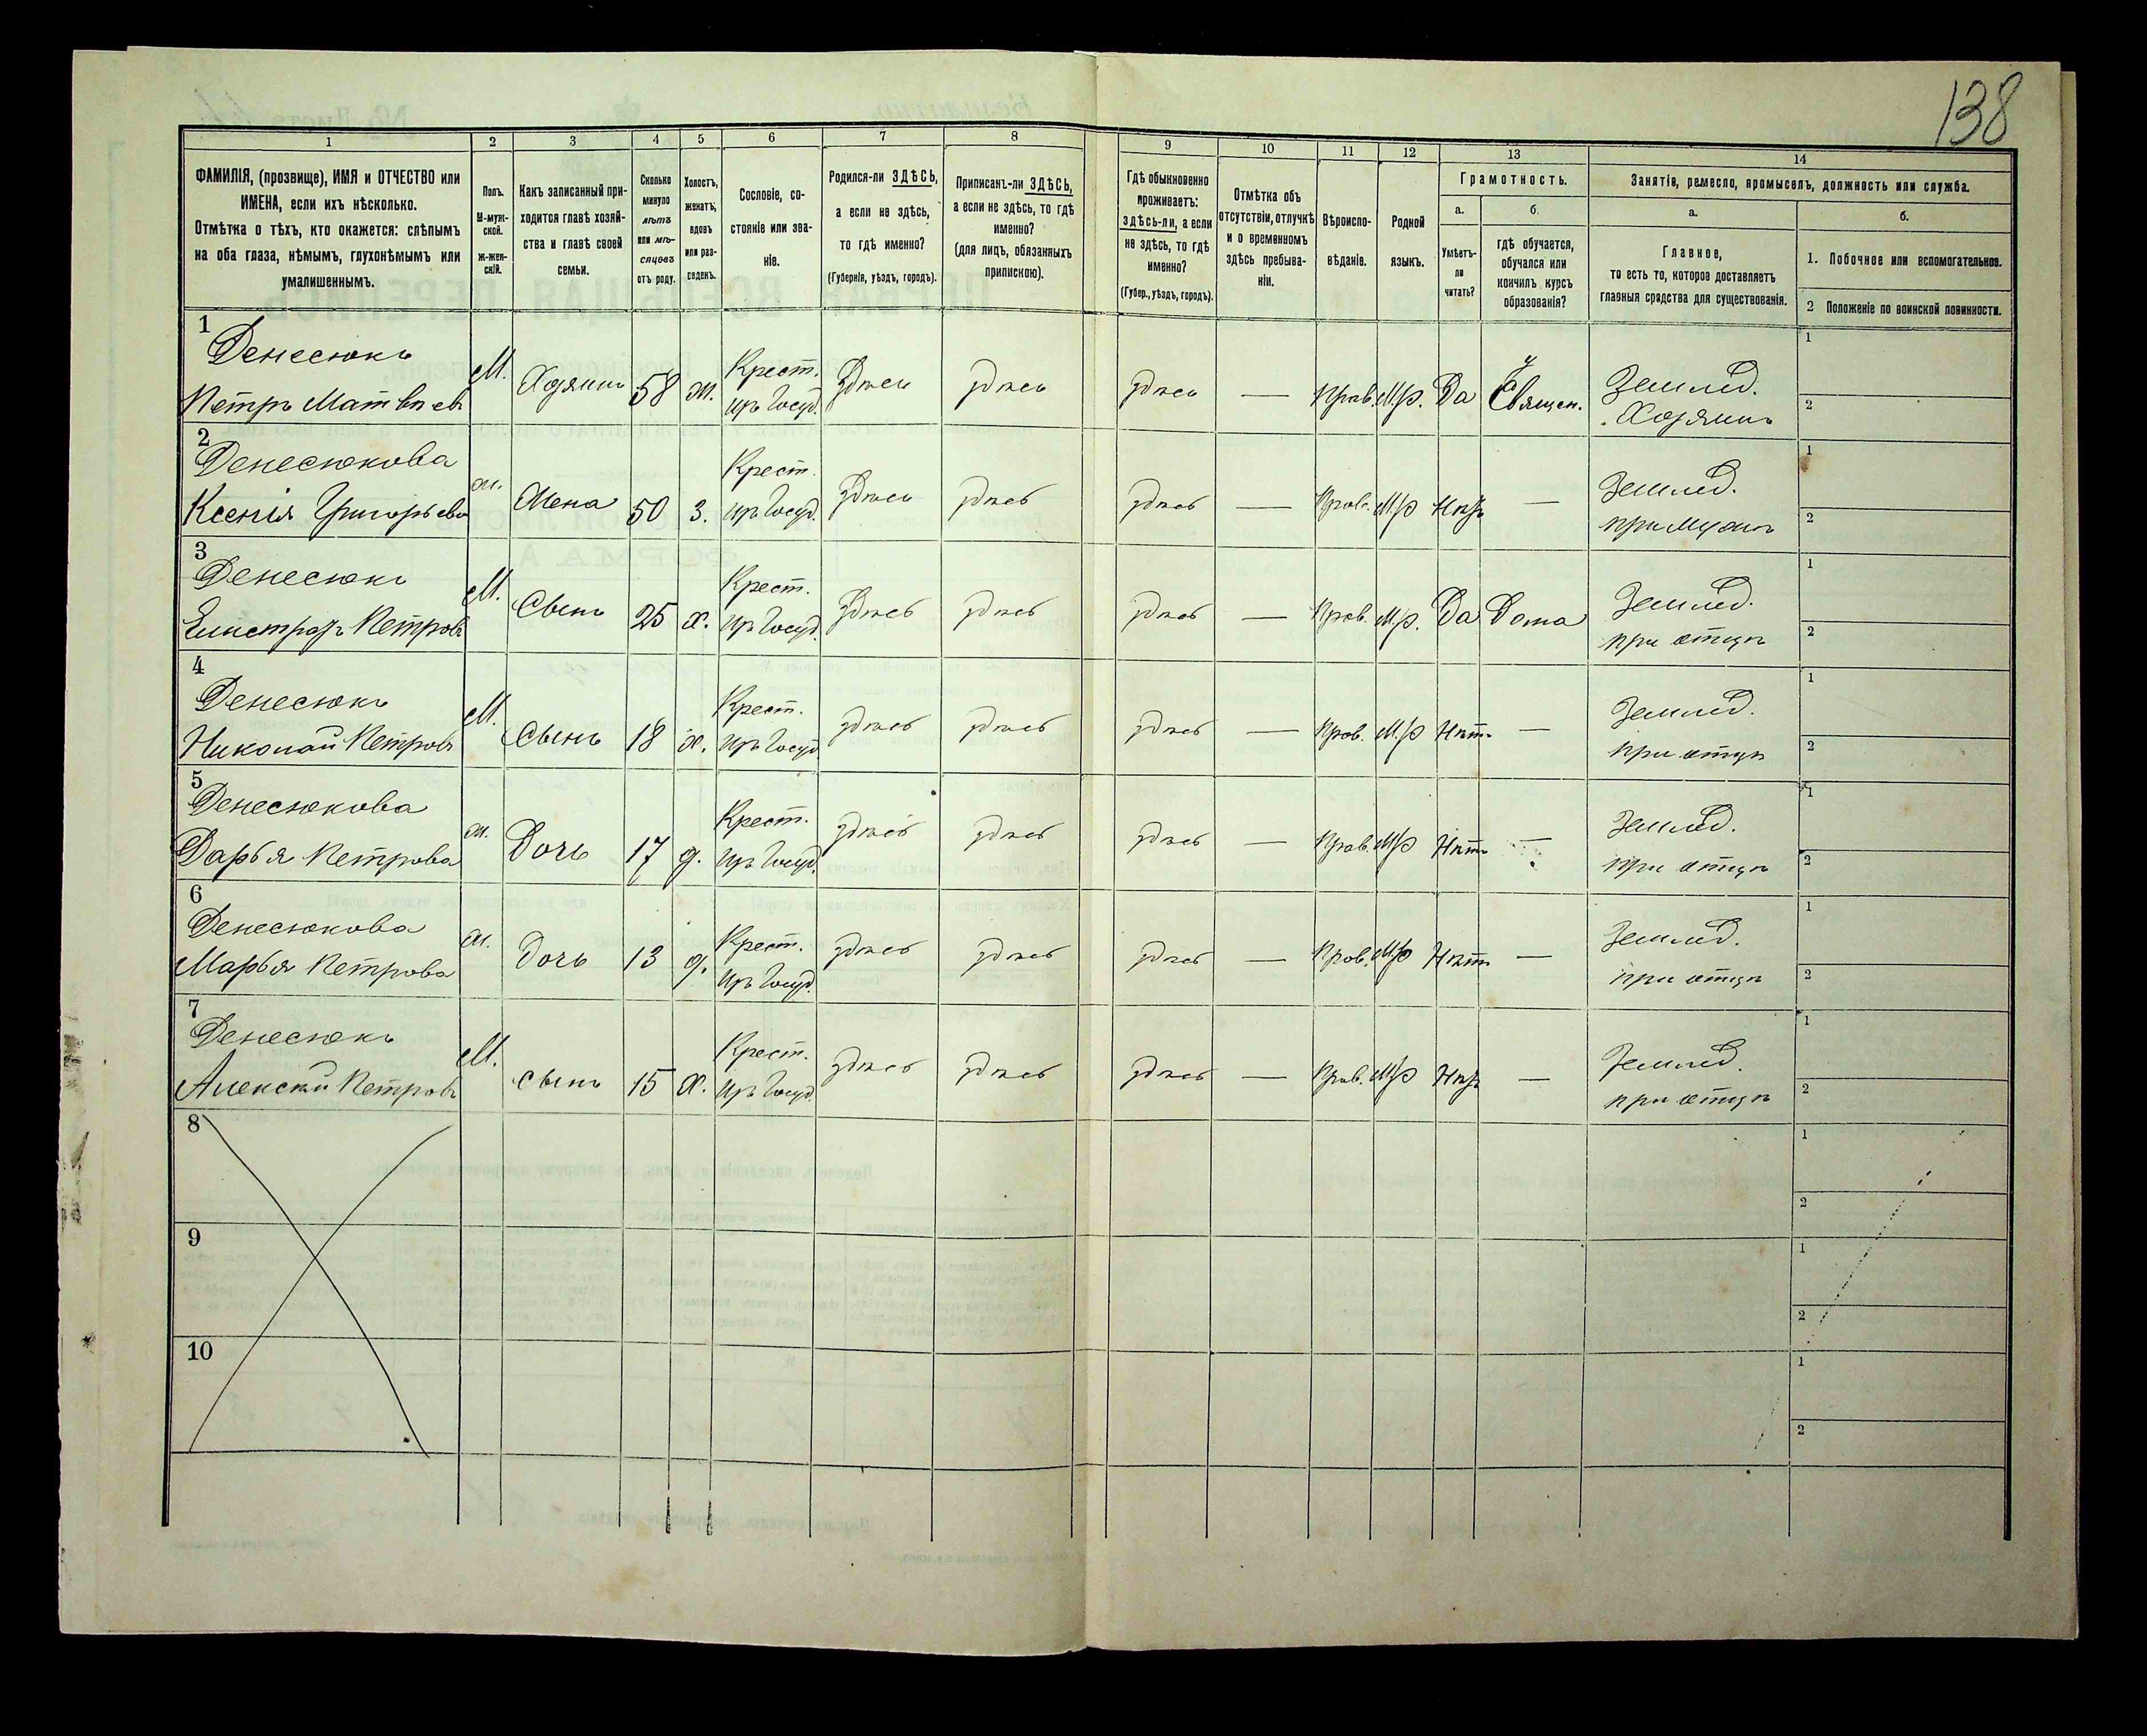 138
1 2 3 4 5 6 7 8 9 10 11 12 13 14
ФАМИЛІЯ, (прозвище), ИМЯ и ОТЧЕСТВО или
ИМЕНА, если ихъ нѣсколько.
Отмѣтка о тѣхъ, кто окажется: слѣпымъ
на оба глаза, нѣмымъ, глухонѣмымъ или
умалишеннымъ.
Полъ.
М-муж-
ской.
ж-жен-
скій.
Какъ записанный при-
ходится главѣ хозяй-
ства и главѣ своей
семьи.
Сколько
минуло
лѣтъ
или мѣ-
сяцевъ
отъ роду.
Холостъ,
женатъ,
вдовъ
или раз-
веденъ.
Сословіе, со-
стояніе или зва-
ніе.
Родился-ли ЗДѢСЬ,
а если не здѣсь,
то гдѣ именно?
(Губернія, уѣздъ, городъ).
Приписанъ-ли ЗДѢСЬ,
а если не здѣсь, то гдѣ
именно?
(для лицъ, обязанныхъ
припискою).
Гдѣ обыкновенно
проживаетъ:
здѣсь-ли, а если
не здѣсь, то гдѣ
именно?
(Губер., уѣздъ, городъ).
Отмѣтка объ
отсутствіи, отлучкѣ
и о временномъ
здѣсь пребыва-
ніи.
Вѣроиспо-
вѣданіе.
Родной
языкъ.
Грамотность.
а.
Умѣетъ-
ли
читать?
б.
гдѣ обучается,
обучался или
кончилъ курсъ
образованія?
Занятіе, ремесло, промыселъ, должность или служба.
а.
Главное,
то есть то, которое доставляетъ
главныя средства для существованія.
б.
1. Побочное или вспомогательное.
2 Положеніе по воинской повинности.
1
Денесюкъ
Петръ Матвѣевъ
М. Хозяинъ 58 ж. Крест.
изъ Госуд. Здѣсь здѣсь здѣсь — Прав. М.р. Да у
Священ. Землед.
Хозяинъ
1
2
2
Денесюкова
Ксенія Григорьева
ж. Жена 50 з. Крест.
изъ Госуд. Здѣсь здѣсь здѣсь — Прав. М.р Нѣтъ — Землед.
при мужѣ
1
2
3
Денесюкъ
Петровъ
М. Сынъ 25 х. Крест.
изъ Госуд. Здѣсь здѣсь здѣсь — Прав. М.р. Да Дома Землед.
при отцѣ
1
2
4
Денесюкъ
Николай Петровъ
М. Сынъ 18 х. Крест.
изъ Госуд. здѣсь здѣсь здѣсь — Прав. М.р Нѣтъ — Землед.
при отцѣ
1
2
5
Денесюкова
Дарья Петрова
ж. Дочь 17 д. Крест.
изъ Госуд. здѣсь здѣсь здѣсь — Прав. М.р Нѣтъ — Землед.
при отцѣ
1
2
6
Денесюкова
Марья Петрова
ж. Дочь 13 д. Крест.
изъ Госуд. здѣсь здѣсь здѣсь — Прав. М.р Нѣтъ — Землед.
при отцѣ
1
2
7
Денесюкъ
Алексѣй Петровъ
М. сынъ 15 х. Крест.
изъ Госуд. здѣсь здѣсь здѣсь — Прав. М.р Нѣтъ — Землед.
при отцѣ
1
2
8
1
2
9
1
2
10
1
2